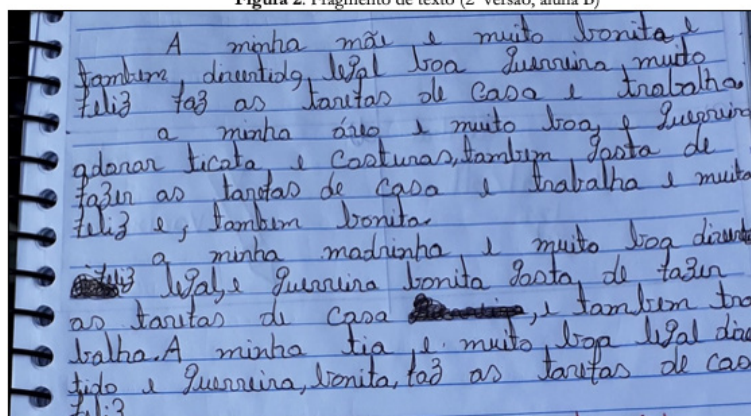 Figura 2. Fragmento de texto (2ª versão, aluna B)
A minha mãe e muito bonita e
tambem, diventido, legal boa guerreira, muito
feliz faz as tarefas de casa e trabalha.
a minha ávo e muito boa, e guerreira
adorar ticata e costuras, tambem gosta de
fazer as tarefas de casa e trabalha e muito
feliz e, tambem bonita.
a minha madrinha, e muito boa divert
feliz legal, e guerreira bonita gosta de fazer
as tarefas de casa , e tambem tra
balha. A minha tia, e muito, boa legal dive
tido e guerreira, bonita, faz as tarefas de cas
feliz